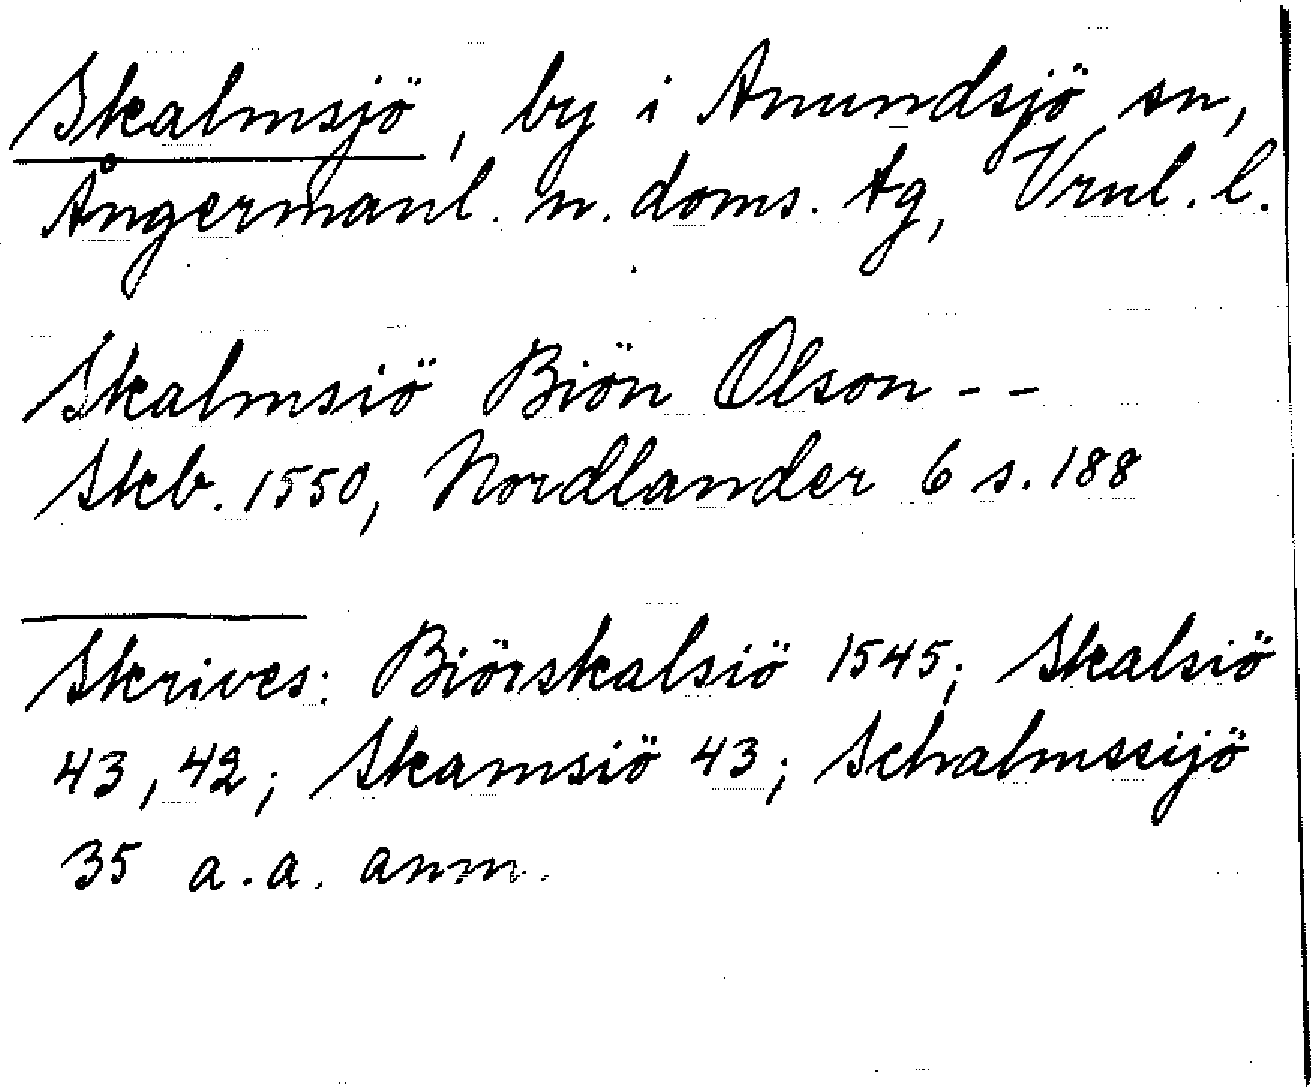 Skalmsjö, by i Anundsjö sn,
Ångermanl. n. doms. tg, Vrnl. l.
Skalmsiö Biön Olson - -
Skb. 1550, Nordlander 6 s. 188
Skrives: Biörskalsiö 1545; Skalsiö
43, 42; Skamsiö 43; Schalmssijö
35 a. a. anm.